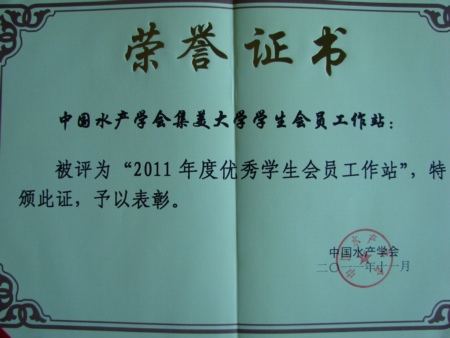 荣誉证书
中国水产学会集美大学学生会员工作站：
被评为“2011年度优秀学生会员工作站”，特
颁此证，予以表彰。
中国水产学会
二〇一一年十一月